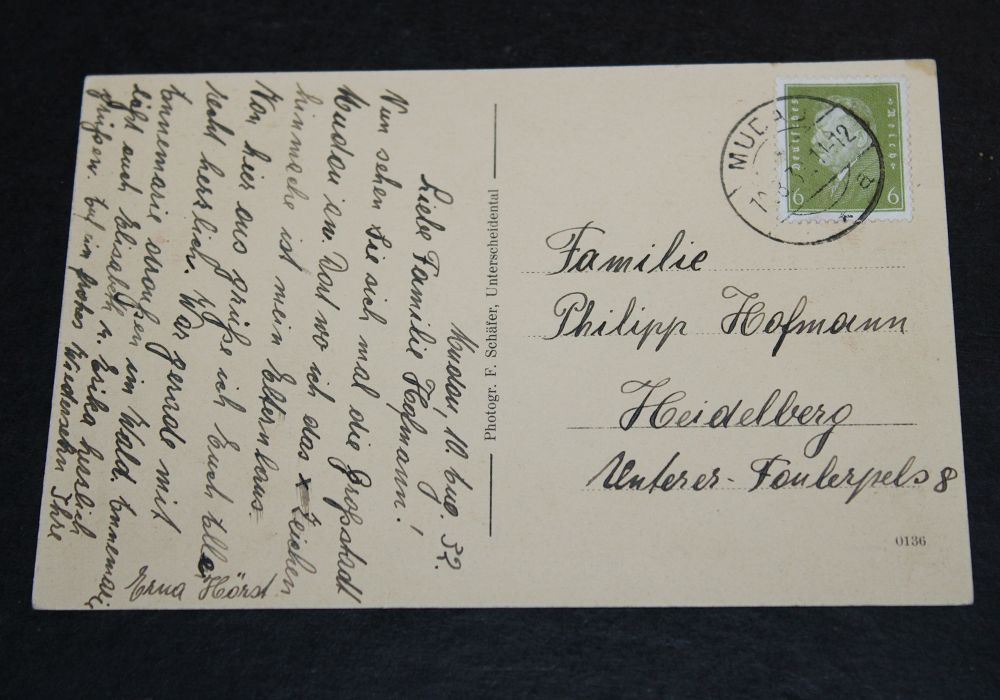 Mudau, 10. Aug. 32.
Liebe Familie Hofmann!
Nun sehen Sie sich mal die Großstadt
Mudau an. Dort wo ich das x Zeichen
hinmache ist mein Elternhaus
Von hier aus grüße ich Euch Alle
recht herzlich. War gerade mit
Annemarie draußen im Wald. Annemarie
läßt auch Elisabeth u. Erika herzlich
grüßen. Auf ein frohes Wiedersehn Ihre
Erna Hörst
Photogr. F. Schäfer, Unterscheidental
Deutsches Reich
6 6
MUDAU
11-12
a
Familie
Philipp Hofmann
Heidelberg
Unterer-Faulerpels 8
0136